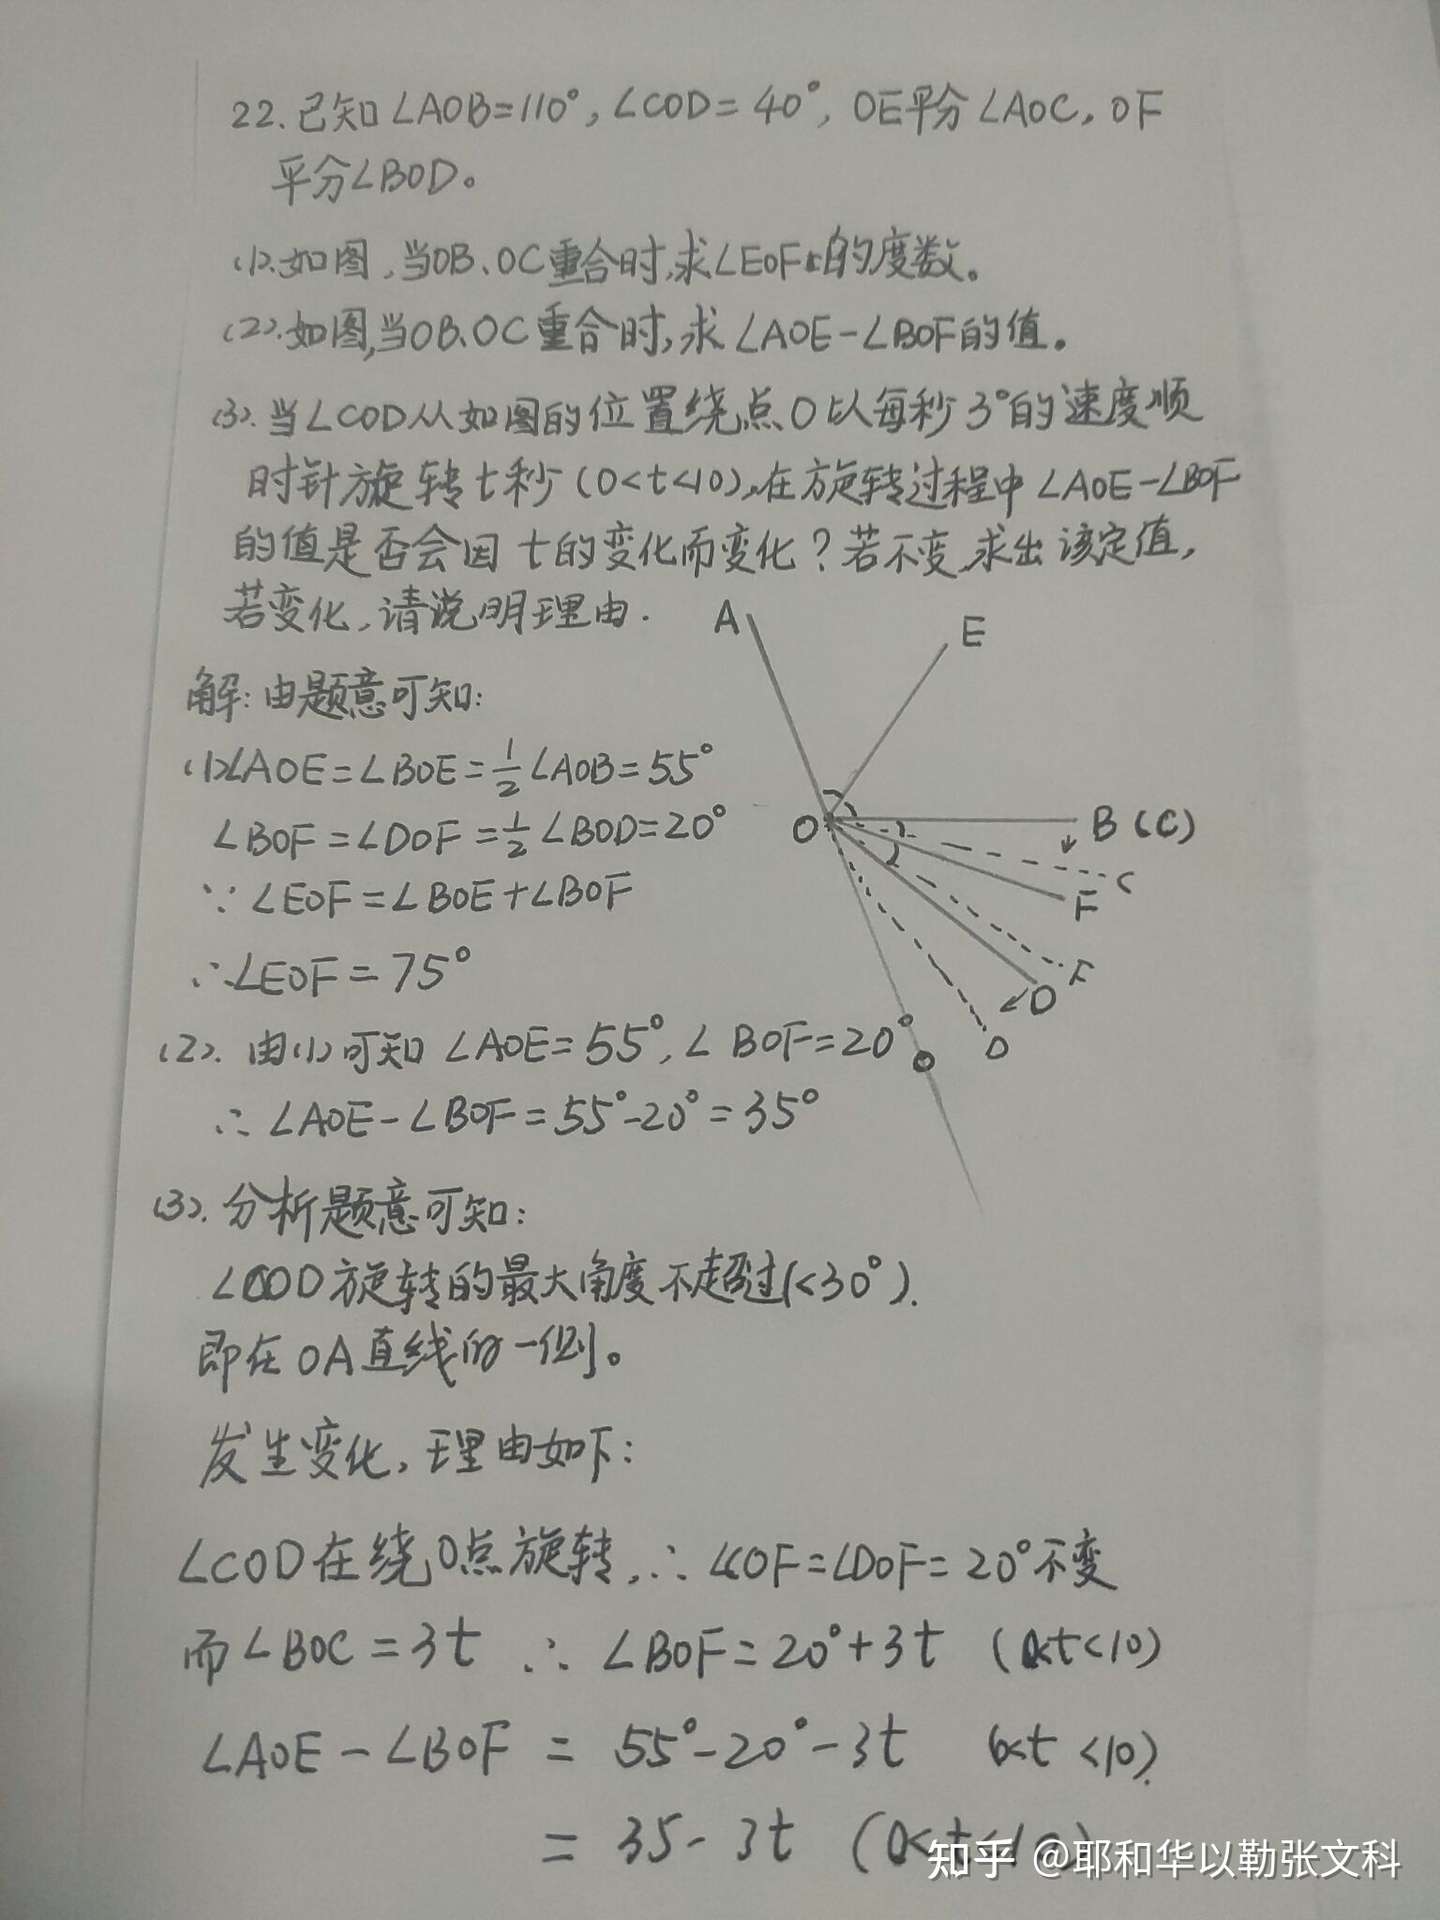 22.已知∠AOB=110°,∠COD=40°,OE平分∠AOC,OF
平分∠BOD。
(1).如图,当OB、OC重合时,求∠EOF的度数。
(2).如图,当OB、OC重合时,求∠AOE-∠BOF的值。
(3).当∠COD从如图的位置绕点O以每秒3°的速度顺
时针旋转t秒(0<t<10),在旋转过程中∠AOE-∠BOF
的值是否会因t的变化而变化?若不变,求出该定值,
若变化,请说明理由.
A
E
解:由题意可知:
(1)∠AOE=∠BOE=1/2∠AOB=55°
O
B(C)
∠BOF=∠DOF=1/2∠BOD=20°
C
∵∠EOF=∠BOE+∠BOF
F
∴∠EOF=75°
F
D
(2).由(1)可知∠AOE=55°,∠BOF=20°
D
D
∴∠AOE-∠BOF=55°-20°=35°
(3).分析题意可知:
∠COD旋转的最大角度不超过(<30°).
即在OA直线的一侧。
发生变化,理由如下:
∠COD在绕O点旋转,∴∠COF=∠DOF=20°不变
而∠BOC=3t ∴∠BOF=20°+3t (0<t<10)
∠AOE-∠BOF=55°-20°-3t (0<t<10).
=35-3t (0<t<10)
知乎 @耶和华以勒张文科